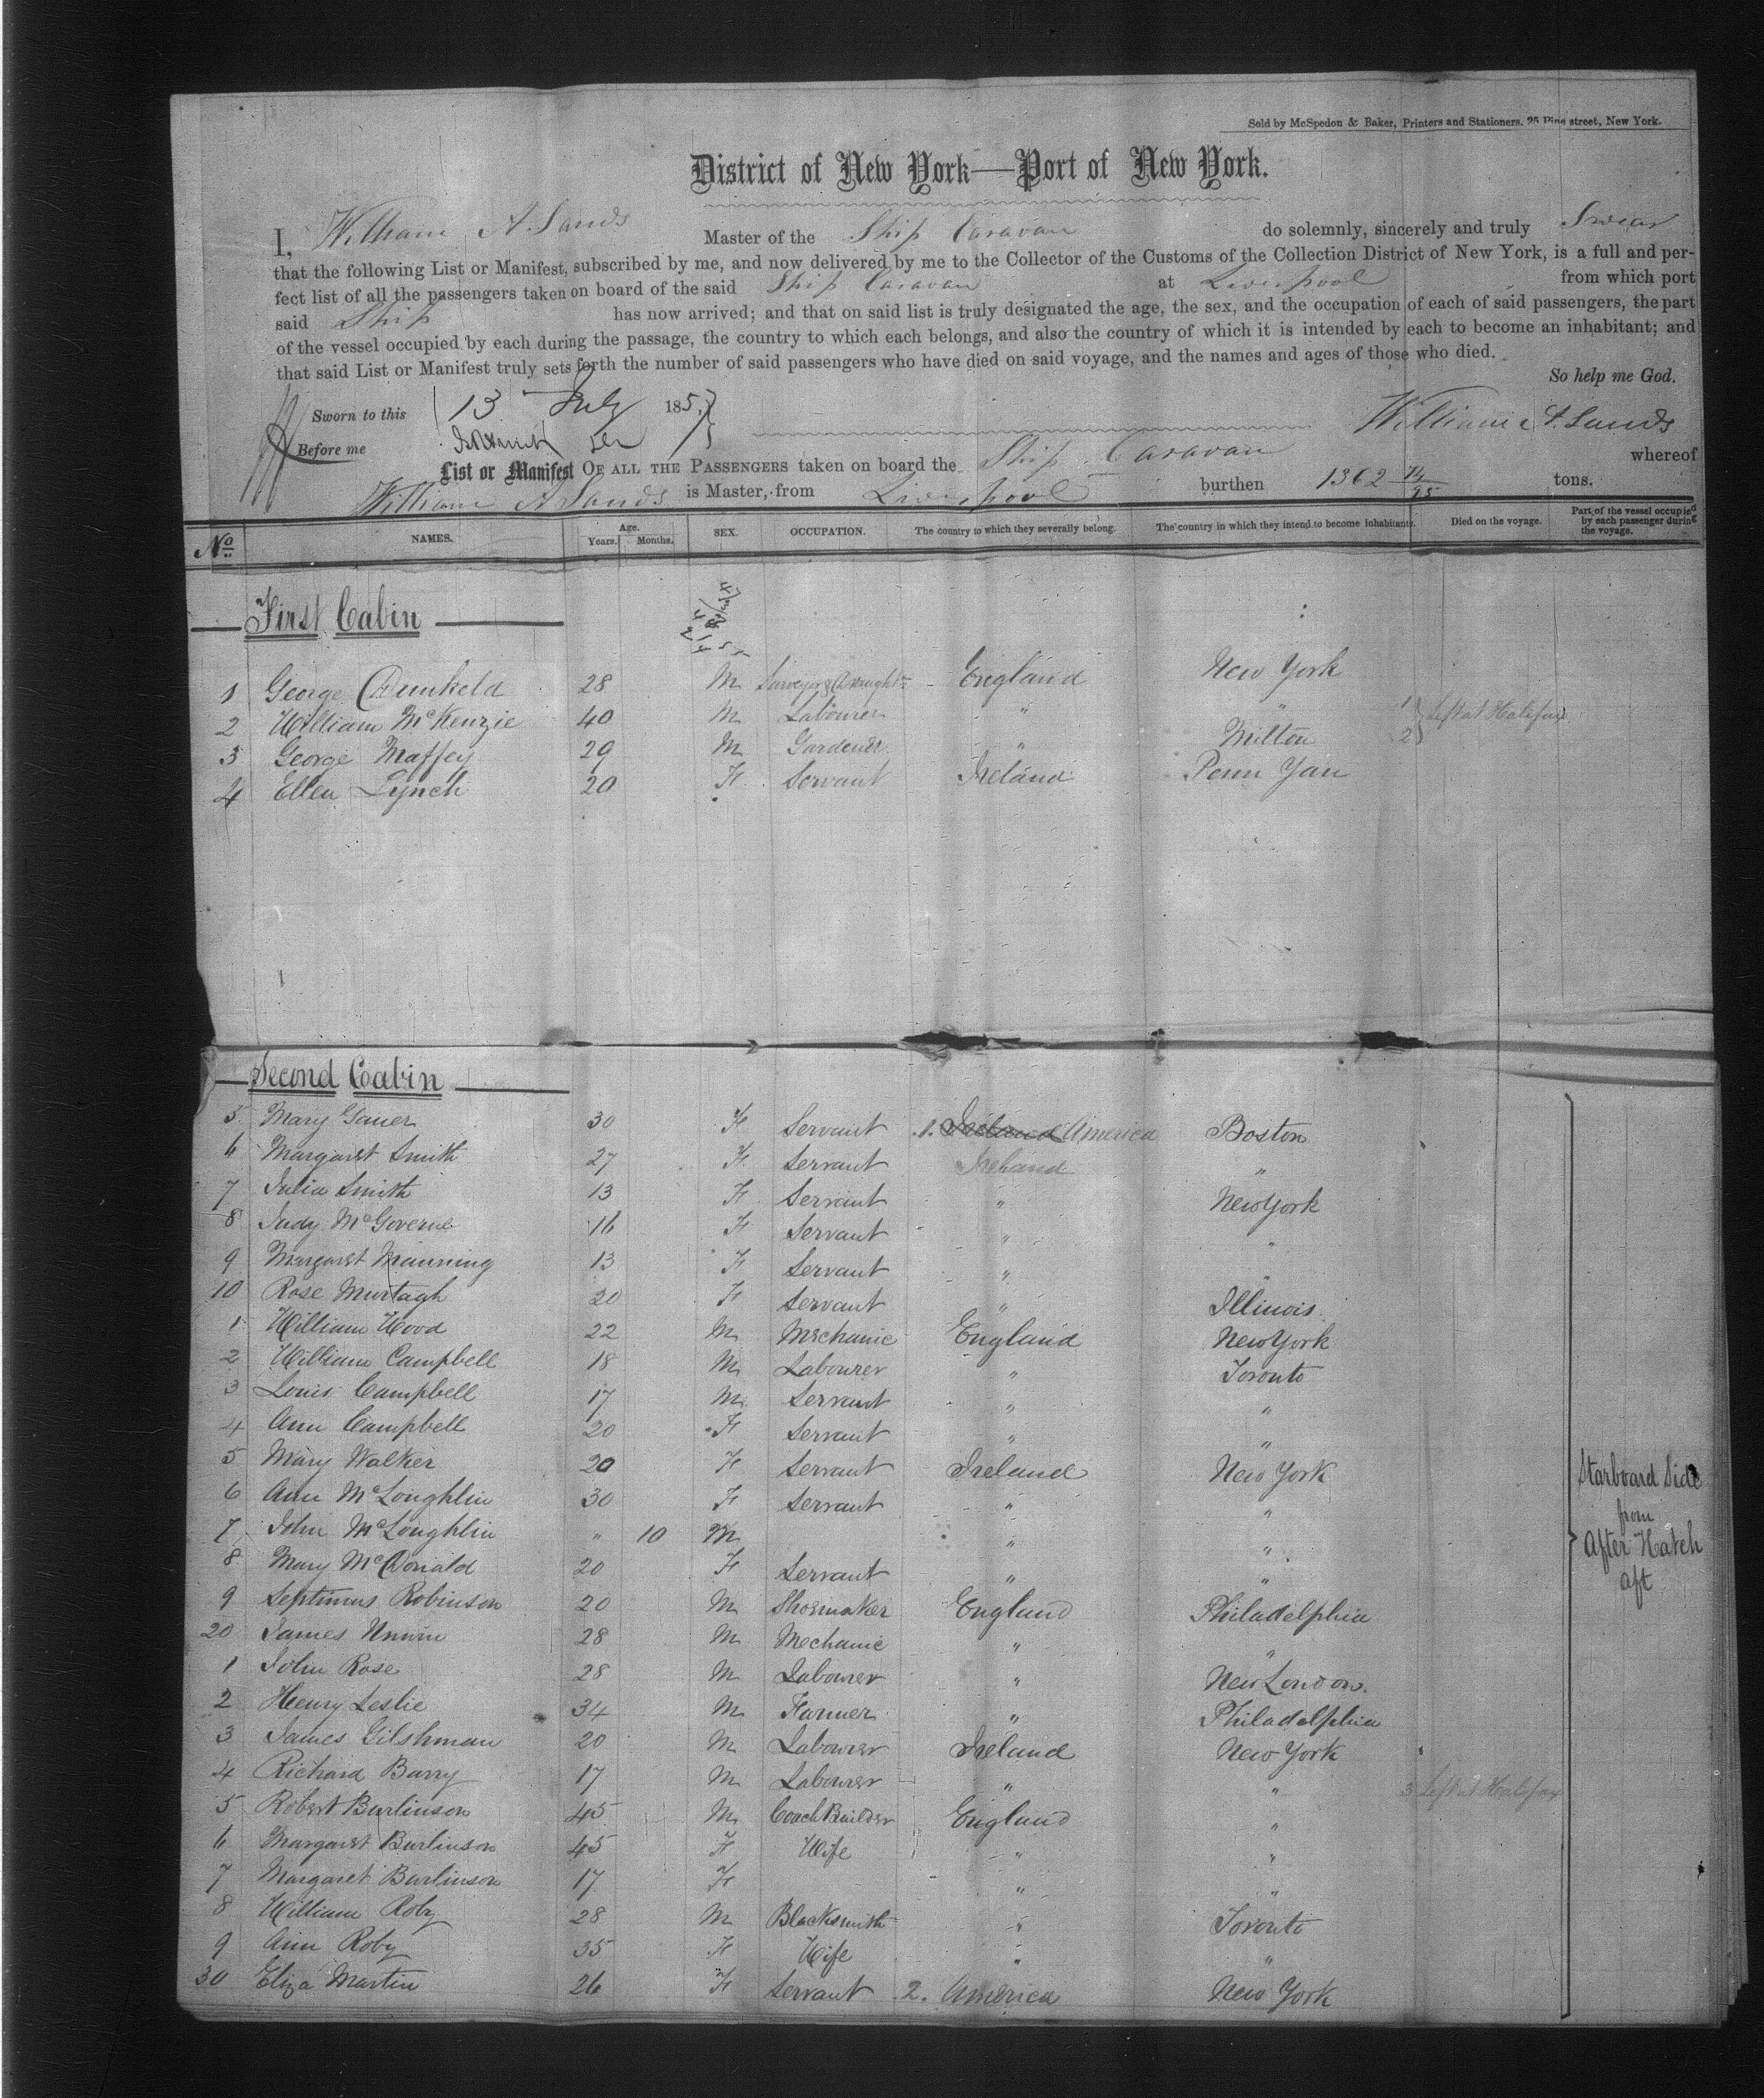 Sold by McSpedon & Baker, Printers and Stationers. 25 Pine street, New York.
District of New York—Port of New York.
I, William A. Sands Master of the Ship Caravan do solemnly, sincerely and truly Swear
that the following List or Manifest, subscribed by me, and now delivered by me to the Collector of the Customs of the Collection District of New York, is a full and per-
fect list of all the passengers taken on board of the said Ship Caravan at Liverpool from which port
said Ship has now arrived; and that on said list is truly designated the age, the sex, and the occupation of each of said passengers, the part
of the vessel occupied by each during the passage, the country to which each belongs, and also the country of which it is intended by each to become an inhabitant; and
that said List or Manifest truly sets forth the number of said passengers who have died on said voyage, and the names and ages of those who died.
So help me God.
Sworn to this 13 July 185
Before me
William A. Sands
List or Manifest OF ALL THE PASSENGERS taken on board the Ship Caravan whereof
William A Sands is Master, from Liverpool burthen 1362 14/95 tons.
No NAMES. Age. Years. Months. SEX. OCCUPATION. The country to which they severally belong. The country in which they intend to become inhabitants. Died on the voyage. Part of the vessel occupied by each passenger during the voyage.
First Cabin
1 George Dunkeld 28 M Surveyor & Draught England New York
2 William McKenzie 40 M Labourer " " 1
3 George Maffey 29 M Gardener " Milton 2 } Left at Halifax
4 Ellen Lynch 20 F Servant Ireland Penn Yan
Second Cabin
5 Mary 30 F Servant 1. Ireland America Boston
6 Margaret Smith 27 F Servant Ireland "
7 Julia Smith 13 F Servant " New York
8 Judy McGovern 16 F Servant " "
9 Margaret Manning 13 F Servant " "
10 Rose Murtagh 20 F Servant " Illinois
1 William Wood 22 M Mechanic England New York
2 William Campbell 18 M Labourer " Toronto
3 Louis Campbell 17 M Servant " "
4 Ann Campbell 20 F Servant " "
5 Mary Walker 20 F Servant Ireland New York
6 Ann McLoughlin 30 F Servant " "
7 John McLoughlin " 10 M " "
8 Mary McDonald 20 F Servant " "
9 Septimus Robinson 20 M Shoemaker England Philadelphia
20 James Unwin 28 M Mechanic " "
1 John Rose 28 M Labourer " New London
2 Henry Leslie 34 M Farmer " Philadelphia
3 James Gilshman 20 M Labourer Ireland New York
4 Richard Barry 17 M Labourer " " 3 Left at Halifax
5 Robert Burlinson 45 M Coach Builder England "
6 Margaret Burlinson 45 F Wife " "
7 Margaret Burlinson 17 F " "
8 William Roby 28 M Blacksmith " Toronto
9 Ann Roby 35 F Wife " "
30 Eliza Martin 26 F Servant 2. America New York
Starboard Side
from
After Hatch
aft